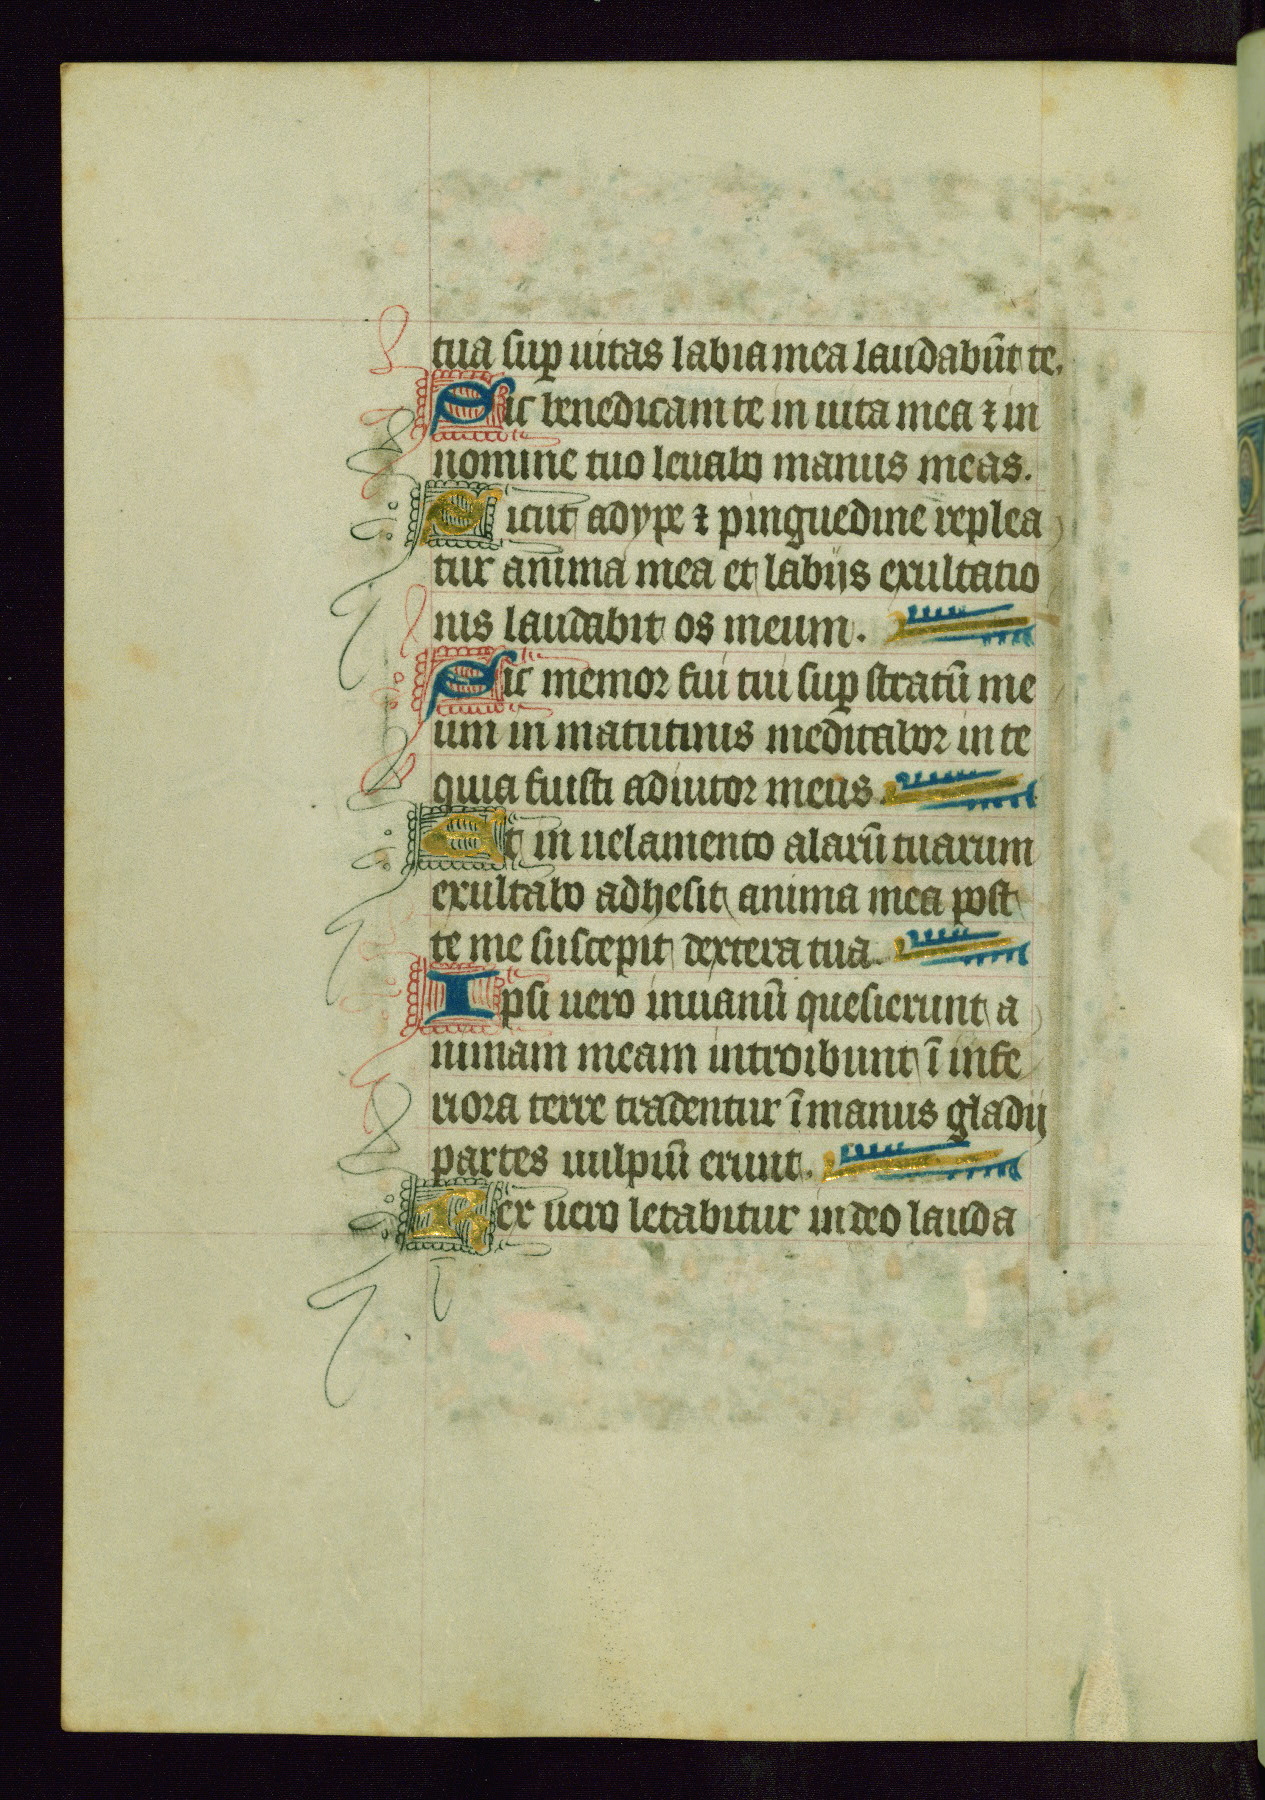 tua sup uitas labia mea laudabūt te.
Sic benedicam te in uita mea ⁊ in
nomine tuo leuabo manus meas.
Sicut adype ⁊ pinguedine replea
tur anima mea et labijs exultatio
nis laudabit os meum.
Sic memor fui tui sup stratū me
um in matutinis meditabor in te
quia fuisti adiutor meus.
Et in uelamento alarū tuarum
exultabo adhesit anima mea post
te me suscepit dextera tua.
Ipsi uero inuanū quesierunt a
nimam meam introibunt ī infe
riora terre tradentur ī manus gladij
partes uulpiū erunt.
Rex uero letabitur in deo lauda